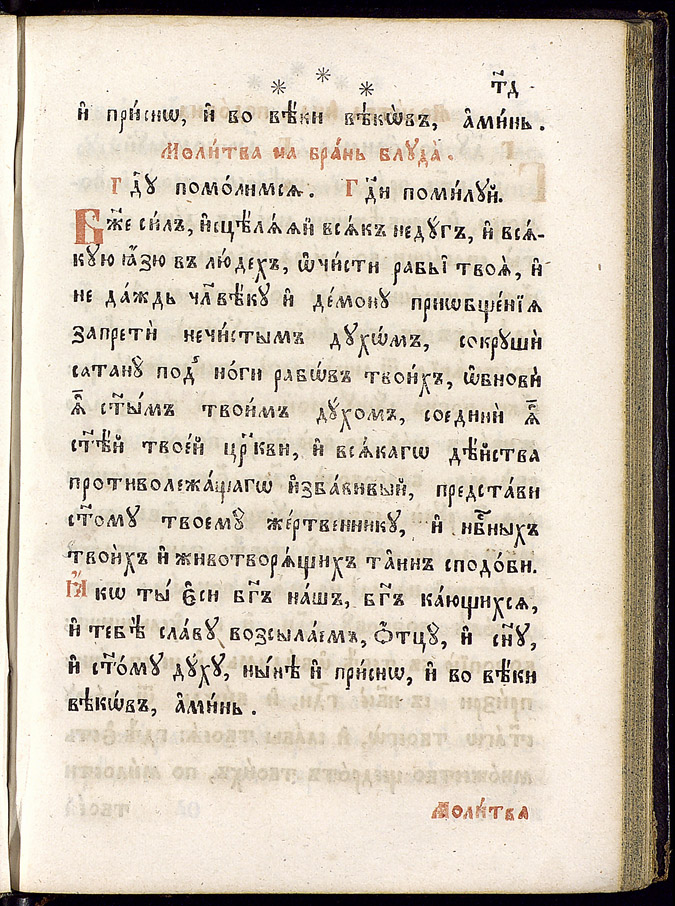 * * *
т҃д
и҆ при́снѡ, и҆ во вѣ́ки вѣкѡ́въ, а҆ми́нь.
Моли́тва на бра́нь блуда̀.
Гд҇ꙋ помолимсѧ. Гд҇и поми́лꙋй.
Бж҃е си́лъ, и҆сцѣлѧ́ѧй всѧ́къ недꙋ́гъ, и҆ всѧ́-
кꙋю ꙗ҆́зю въ лю́дехъ, ѡ҆чи́сти рабы̀ твоѧ̀, и҆
не да́ждь чл҃вѣ́кꙋ и҆ де́монꙋ приѡбще́нїѧ
запретѝ нечи́стымъ дꙋ́хѡмъ, сокрꙋшѝ
сатанꙋ̀ под̾ но́ги рабѡ́въ твои́хъ, ѡ҆бновѝ
ѧ҆̀ ст҃ы́мъ твои́мъ дꙋ́хомъ, соединѝ ѧ҆̀
ст҃ѣ́й твое́й цр҃кви, и҆ всѧ́кагѡ дѣ́йства
противолежа́щагѡ и҆зба́вивый, предста́ви
ст҃о́мꙋ твоемꙋ̀ же́ртвенникꙋ, и҆ нб҇ныхъ
твои́хъ и҆ животворѧ́щихъ та́инъ сподо́би.
Ꙗ҆́кѡ ты̀ є҆сѝ бг҃ъ на́шъ, бг҃ъ ка́ющихсѧ,
и҆ тебѣ̀ сла́вꙋ возсыла́емъ, Ѻ҆тцꙋ̀, и҆ сн҃ꙋ,
и҆ ст҃о́мꙋ дꙋ́хꙋ, ны́нѣ и҆ при́снѡ, и҆ во вѣ́ки
вѣкѡ́въ, а҆ми́нь.
Моли́тва